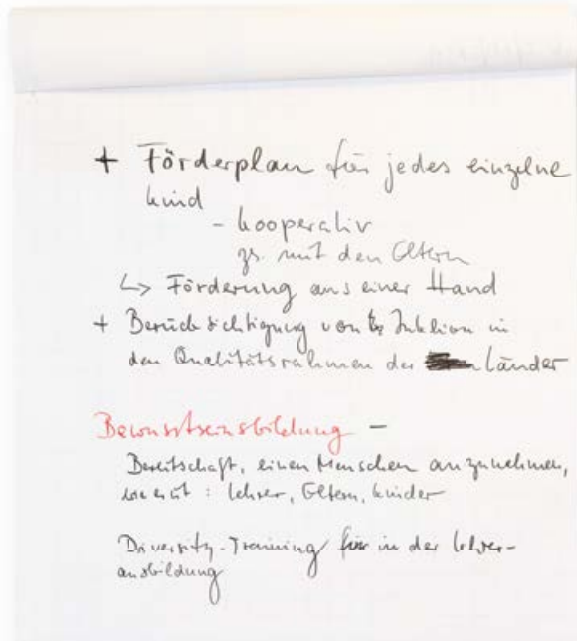 + Förderplan für jedes einzelne
kind
- kooperativ
zs. mit den Eltern
↳ Förderung aus einer Hand
+ Berücksichtigung von Inklion in
den Qualitätsrahmen der Länder
Bewusstseinsbildung –
Bereitschaft, einen Menschen anzunehmen,
wie er ist : Lehrer, Eltern, kinder
Diversity-Training für in der lehrer-
ausbildung